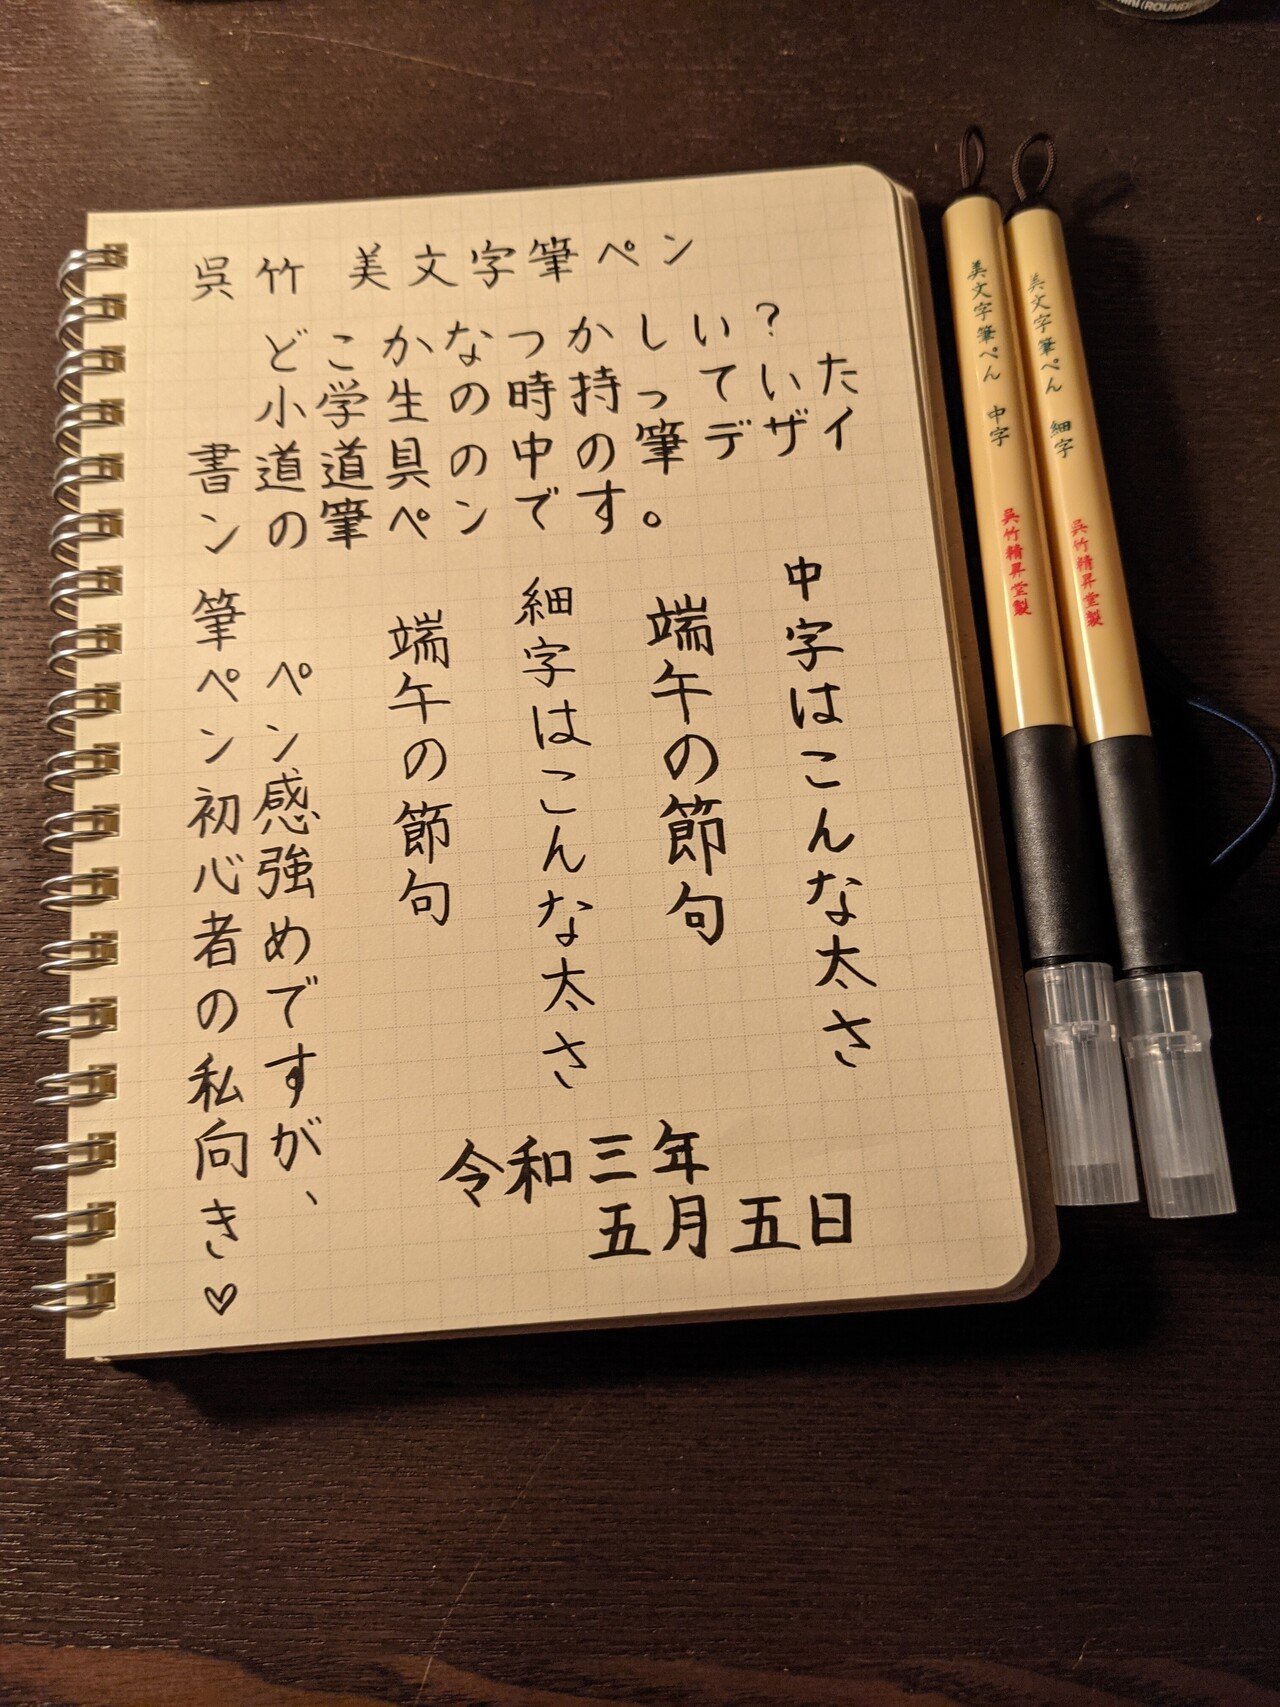 呉竹 美文字筆ペン
どこかなつかしい?
小学生の時持っていた
書道道具の中の筆デザイ
ンの筆ペンです。
中字はこんな太さ
端午の節句
細字はこんな太さ
端午の節句
ペン感強めですが、
筆ペン初心者の私向き♡
令和三年
五月五日
美文字筆ぺん 中字 呉竹精昇堂製
美文字筆ぺん 細字 呉竹精昇堂製